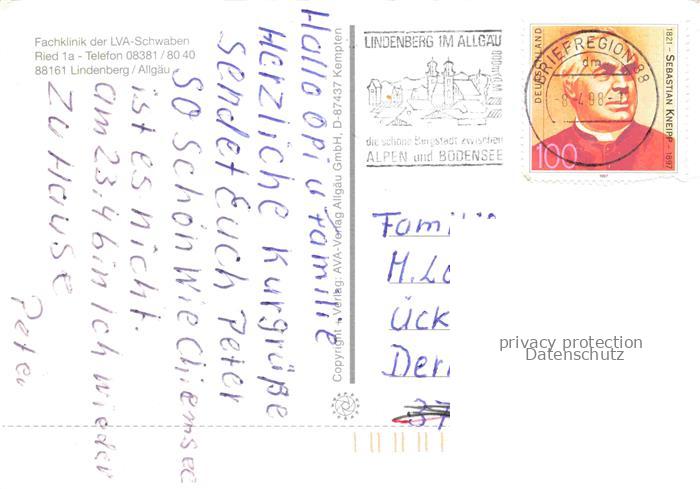 Fachklinik der LVA-Schwaben
Ried 1a - Telefon 08381 / 80 40
88161 Lindenberg / Allgäu
Hallo Opi u Familie
Herzliche Kurgrüße
sendet Euch Peter
so schön wie Chiemsee
ist es nicht.
am 23.4 bin ich wieder
zu Hause
Peter
Copyright + Verlag: AVA-Verlag Allgäu GmbH, D-87437 Kempten
LINDENBERG IM ALLGÄU
800m ü.M.
die schöne Bergstadt zwischen
ALPEN und BODENSEE
BRIEFREGION 88
dm
-8.-4.98-
DEUTSCHLAND
1821 - SEBASTIAN KNEIPP - 1897
100
1997
Fami
M.
Ück
Der
37
privacy protection
Datenschutz